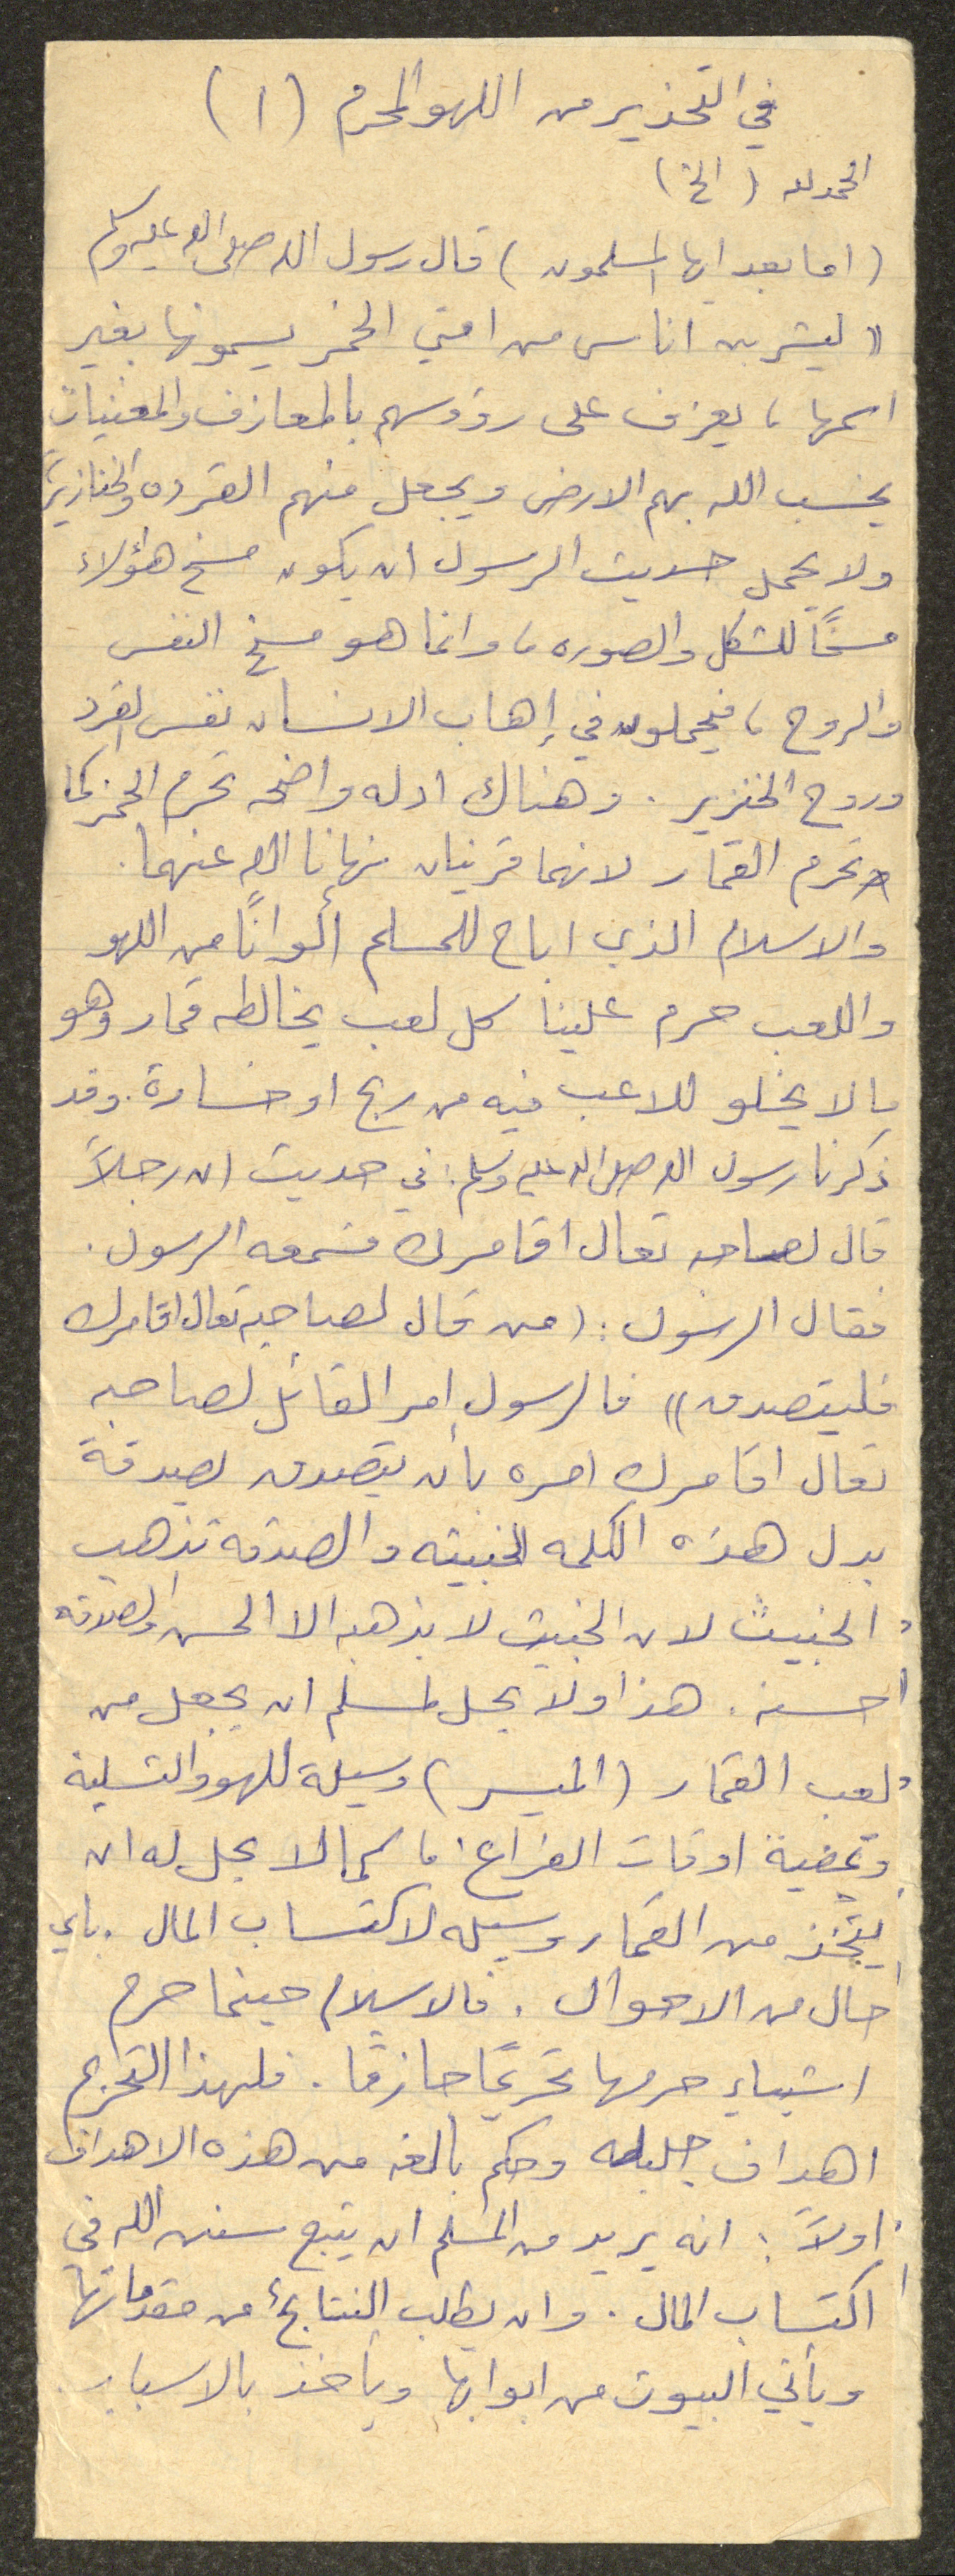 في التحذير من اللهو المحرم (١)
الحمد لله (الخ)
(اما بعد ايها المسلمون) قال رسول الله صلى الله عليه وسلم
"ليشربن اناس من امتي الخمر يسمونها بغير
اسمها، يعزف على رؤوسهم بالمعازف والمغنيات
يخسف الله بهم الارض ويجعل منهم القرده والخنازير"
ولا يحمل حديث الرسول ان يكون مسخ هؤلاء
مسخًا للشكل والصوره، وانما هو مسخ النفس
والروح، فيحملون في إهاب الانسان نفس القرد
وروح الخنزير. وهناك ادله واضحه تحرم الخمر كما
تحرم القمار لانهما قرينان نهانا الله عنهما.
والاسلام الذي اباح للمسلم ألوانًا من اللهو
واللعب حرم علينا كل لعب يخالطه قمار وهو
ما لا يخلو اللاعب فيه من ربح او خسارة. وقد
ذكرنا رسول الله صلى الله عليه وسلم: في حديث ان رجلاً
قال لصاحبه تعال اقامرك فسمعه الرسول.
فقال الرسول: (من قال لصاحبه تعال اقامرك
فليتصدق)) فالرسول امر القائل لصاحبه
تعال اقامرك امره بأن يتصدق بصدقة
بدل هذه الكلمه الخبيثه والصدقه تذهب
الخبيث لان الخبيث لا يذهبه الا الحسن والصدقه
حسنه. هذا ولا يحل لمسلم ان يجعل من
لعب القمار (الميسر) وسيلة للهو والتسلية
وتمضية اوقات الفراغ. كما لا يحل له ان
يتخذ من القمار وسيله لاكتساب المال. باي
حال من الاحوال. فالاسلام حينما حرم
اشياء حرمها تحريمًا جازمًا. فلهذا التحريم
اهداف جليله وحكم بالغه من هذه الاهداف
اولاً: انه يريد من المسلم ان يتبع سنن الله في
اكتساب المال. وان يطلب النتائج من مقدماتها
ويأتي البيوت من ابوابها ويأخذ بالاسباب.